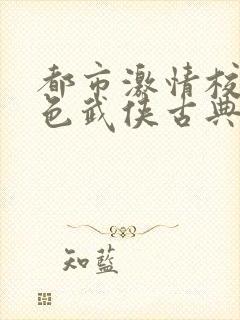 都市激情校
色武侠古典
知蓝